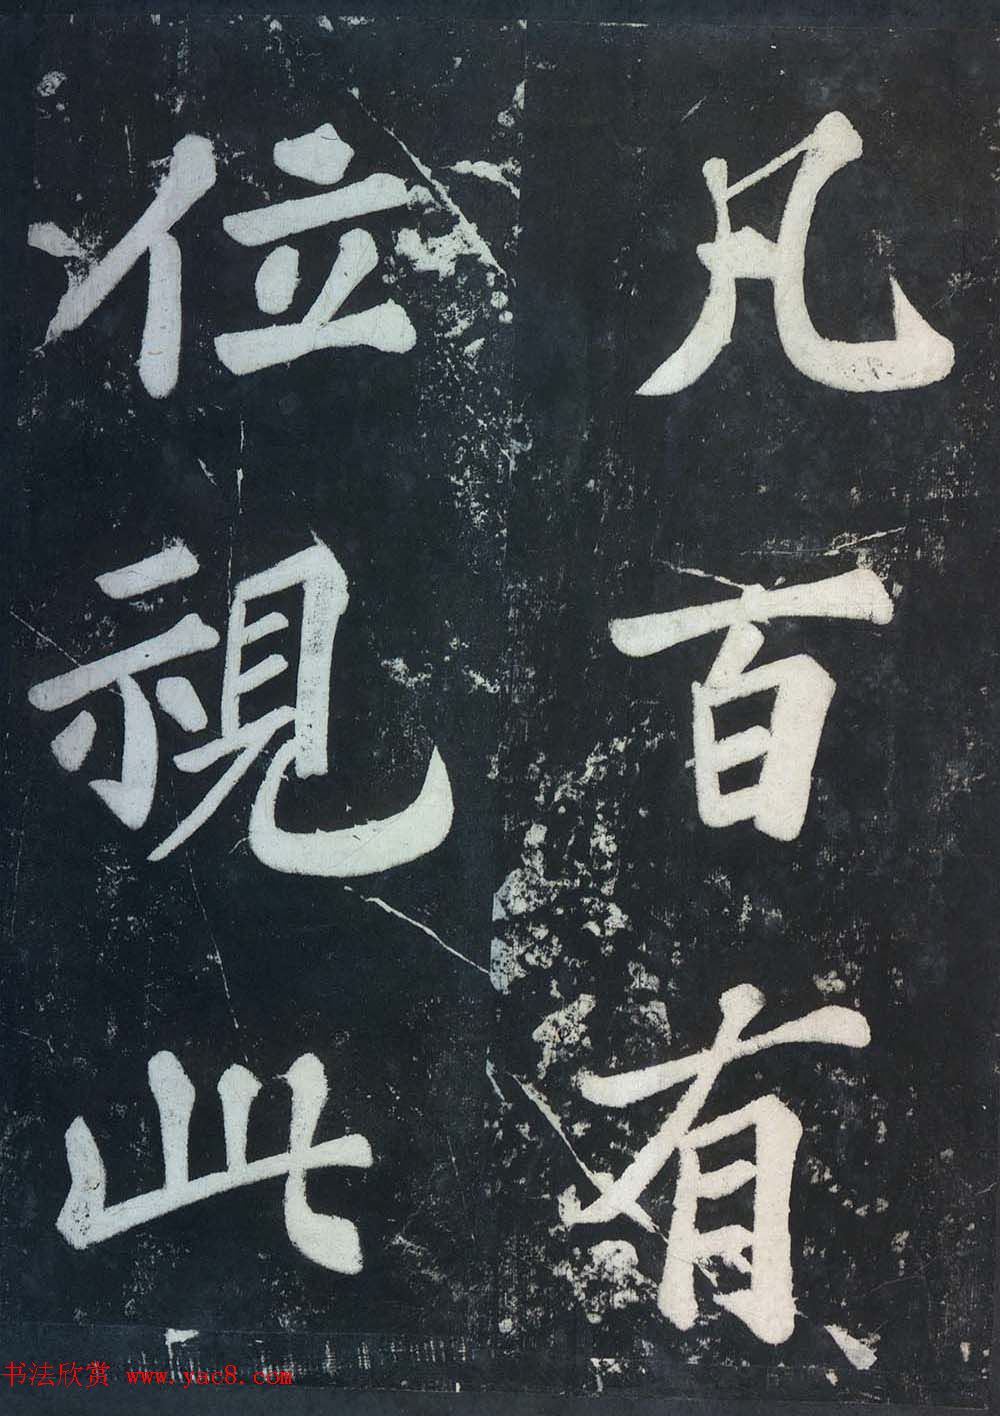 凡百有
位視此
书法欣赏 www.yac8.com